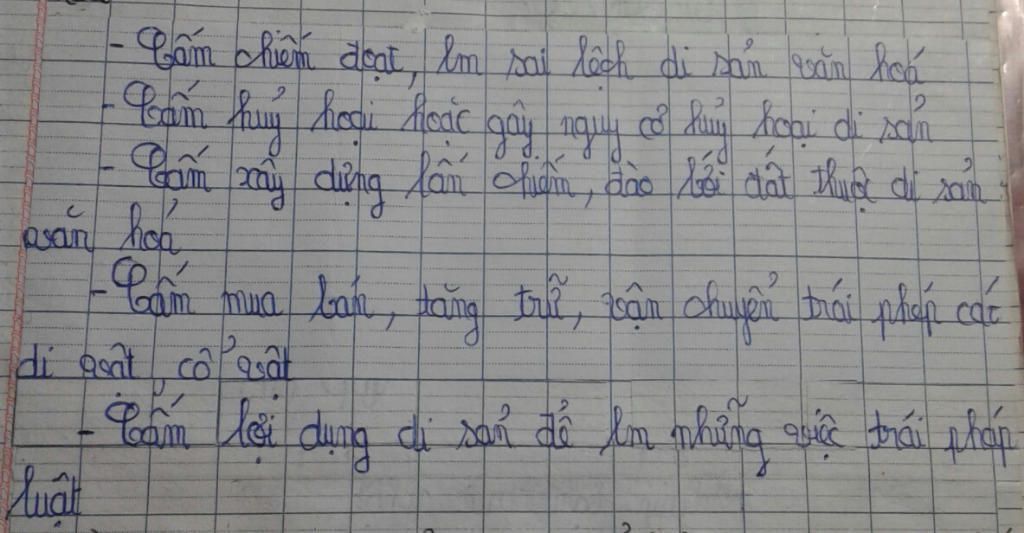 - Cấm chiếm đoạt, lm sai lệch di sản văn hoá
- Cấm huỷ hoại hoặc gây nguy cơ hủy hoại di sản
- Cấm xây dựng lấn chiếm, đào bới đất thuộc di sản
văn hoá
- Cấm mua bán, tàng trữ, vận chuyển trái phép các
di vật, cổ vật
- Cấm lợi dụng di sản để lm những việc trái pháp
luật